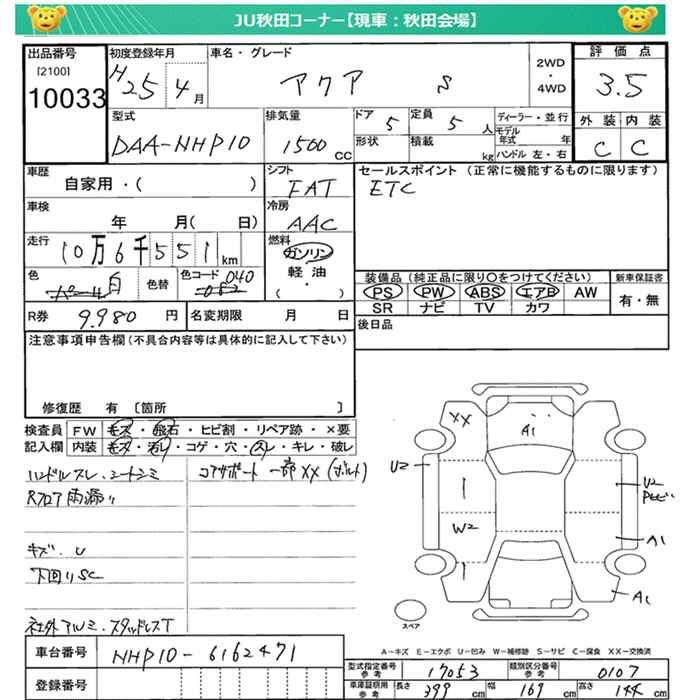 JU秋田コーナー【現車:秋田会場】
出品番号
[2100]
10033
初度登録年月
H25 4月
車名・グレード
アクア S
2WD
・
4WD
評価点
3.5
型式
DAA-NHP10
排気量
1500 CC
ドア 5
定員 5 人
形状
積載 kg
ディーラー・並行
モデル年式 年
ハンドル 左・右
外装 内装
C C
車歴
自家用・( )
シフト
FAT
セールスポイント(正常に機能するものに限ります)
ETC
車検
年 月( 日)
冷房
AAC
走行
10万6千551km
燃料
ガソリン
軽油
・
( )
色
パール白
色替
色コード 040
082
装備品(純正品に限り○をつけてください)
PS PW ABS エアB AW
SR ナビ TV カワ
新車保証書
有・無
R券 9.980 円
名変期限 月 日
後日品
注意事項申告欄(不具合内容等は具体的に記入して下さい)
修復歴 有〔箇所 〕
検査員記入欄
FW キズ・飛石・ヒビ割・リペア跡・×要
内装 キズ・汚れ・コゲ・穴・スレ・キレ・破レ
ハンドルスレ、シートシミ
コアサポート 一部XX(ボルト)
Rフロア雨漏り
キズ、U
下回りSC
社外アルミ、スタッドレスT
XX
A1
U2
W2
U2
A1
A1
スペア
A-キズ E-エクボ U-凹み W-補修跡 S-サビ C-腐食 XX-交換済
車台番号 NHP10-6162471
登録番号
型式指定番号 参考 17053
類別区分番号 参考 0107
車庫証明用 参考 長さ 399 cm 幅 169 cm 高さ 144 cm